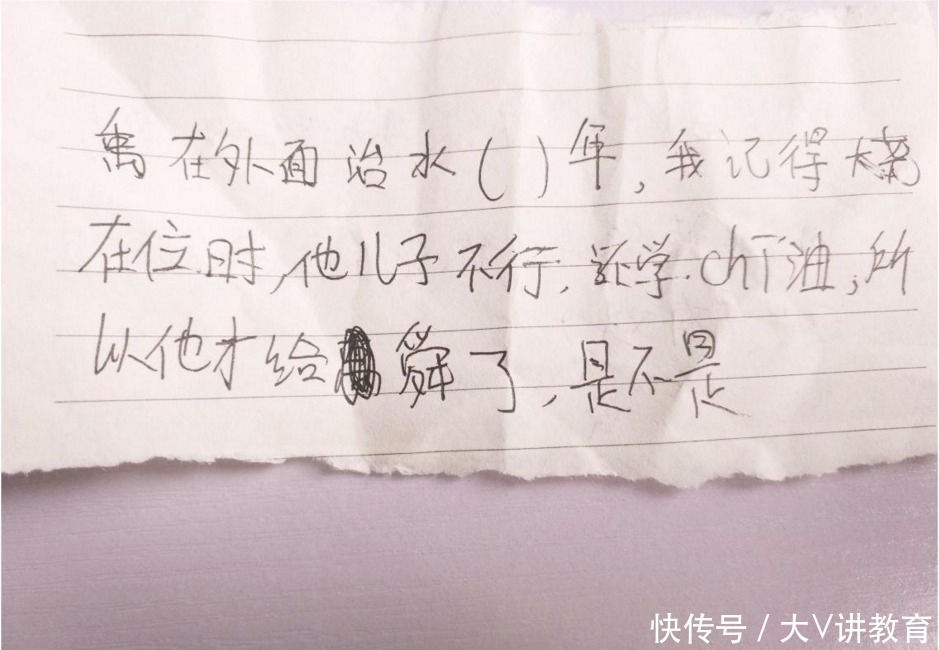 禹在外面治水()年,我记得
在位时,他儿子不行,还学chī油,所
以他才给舜了,是不是
快传号 / 大V讲教育